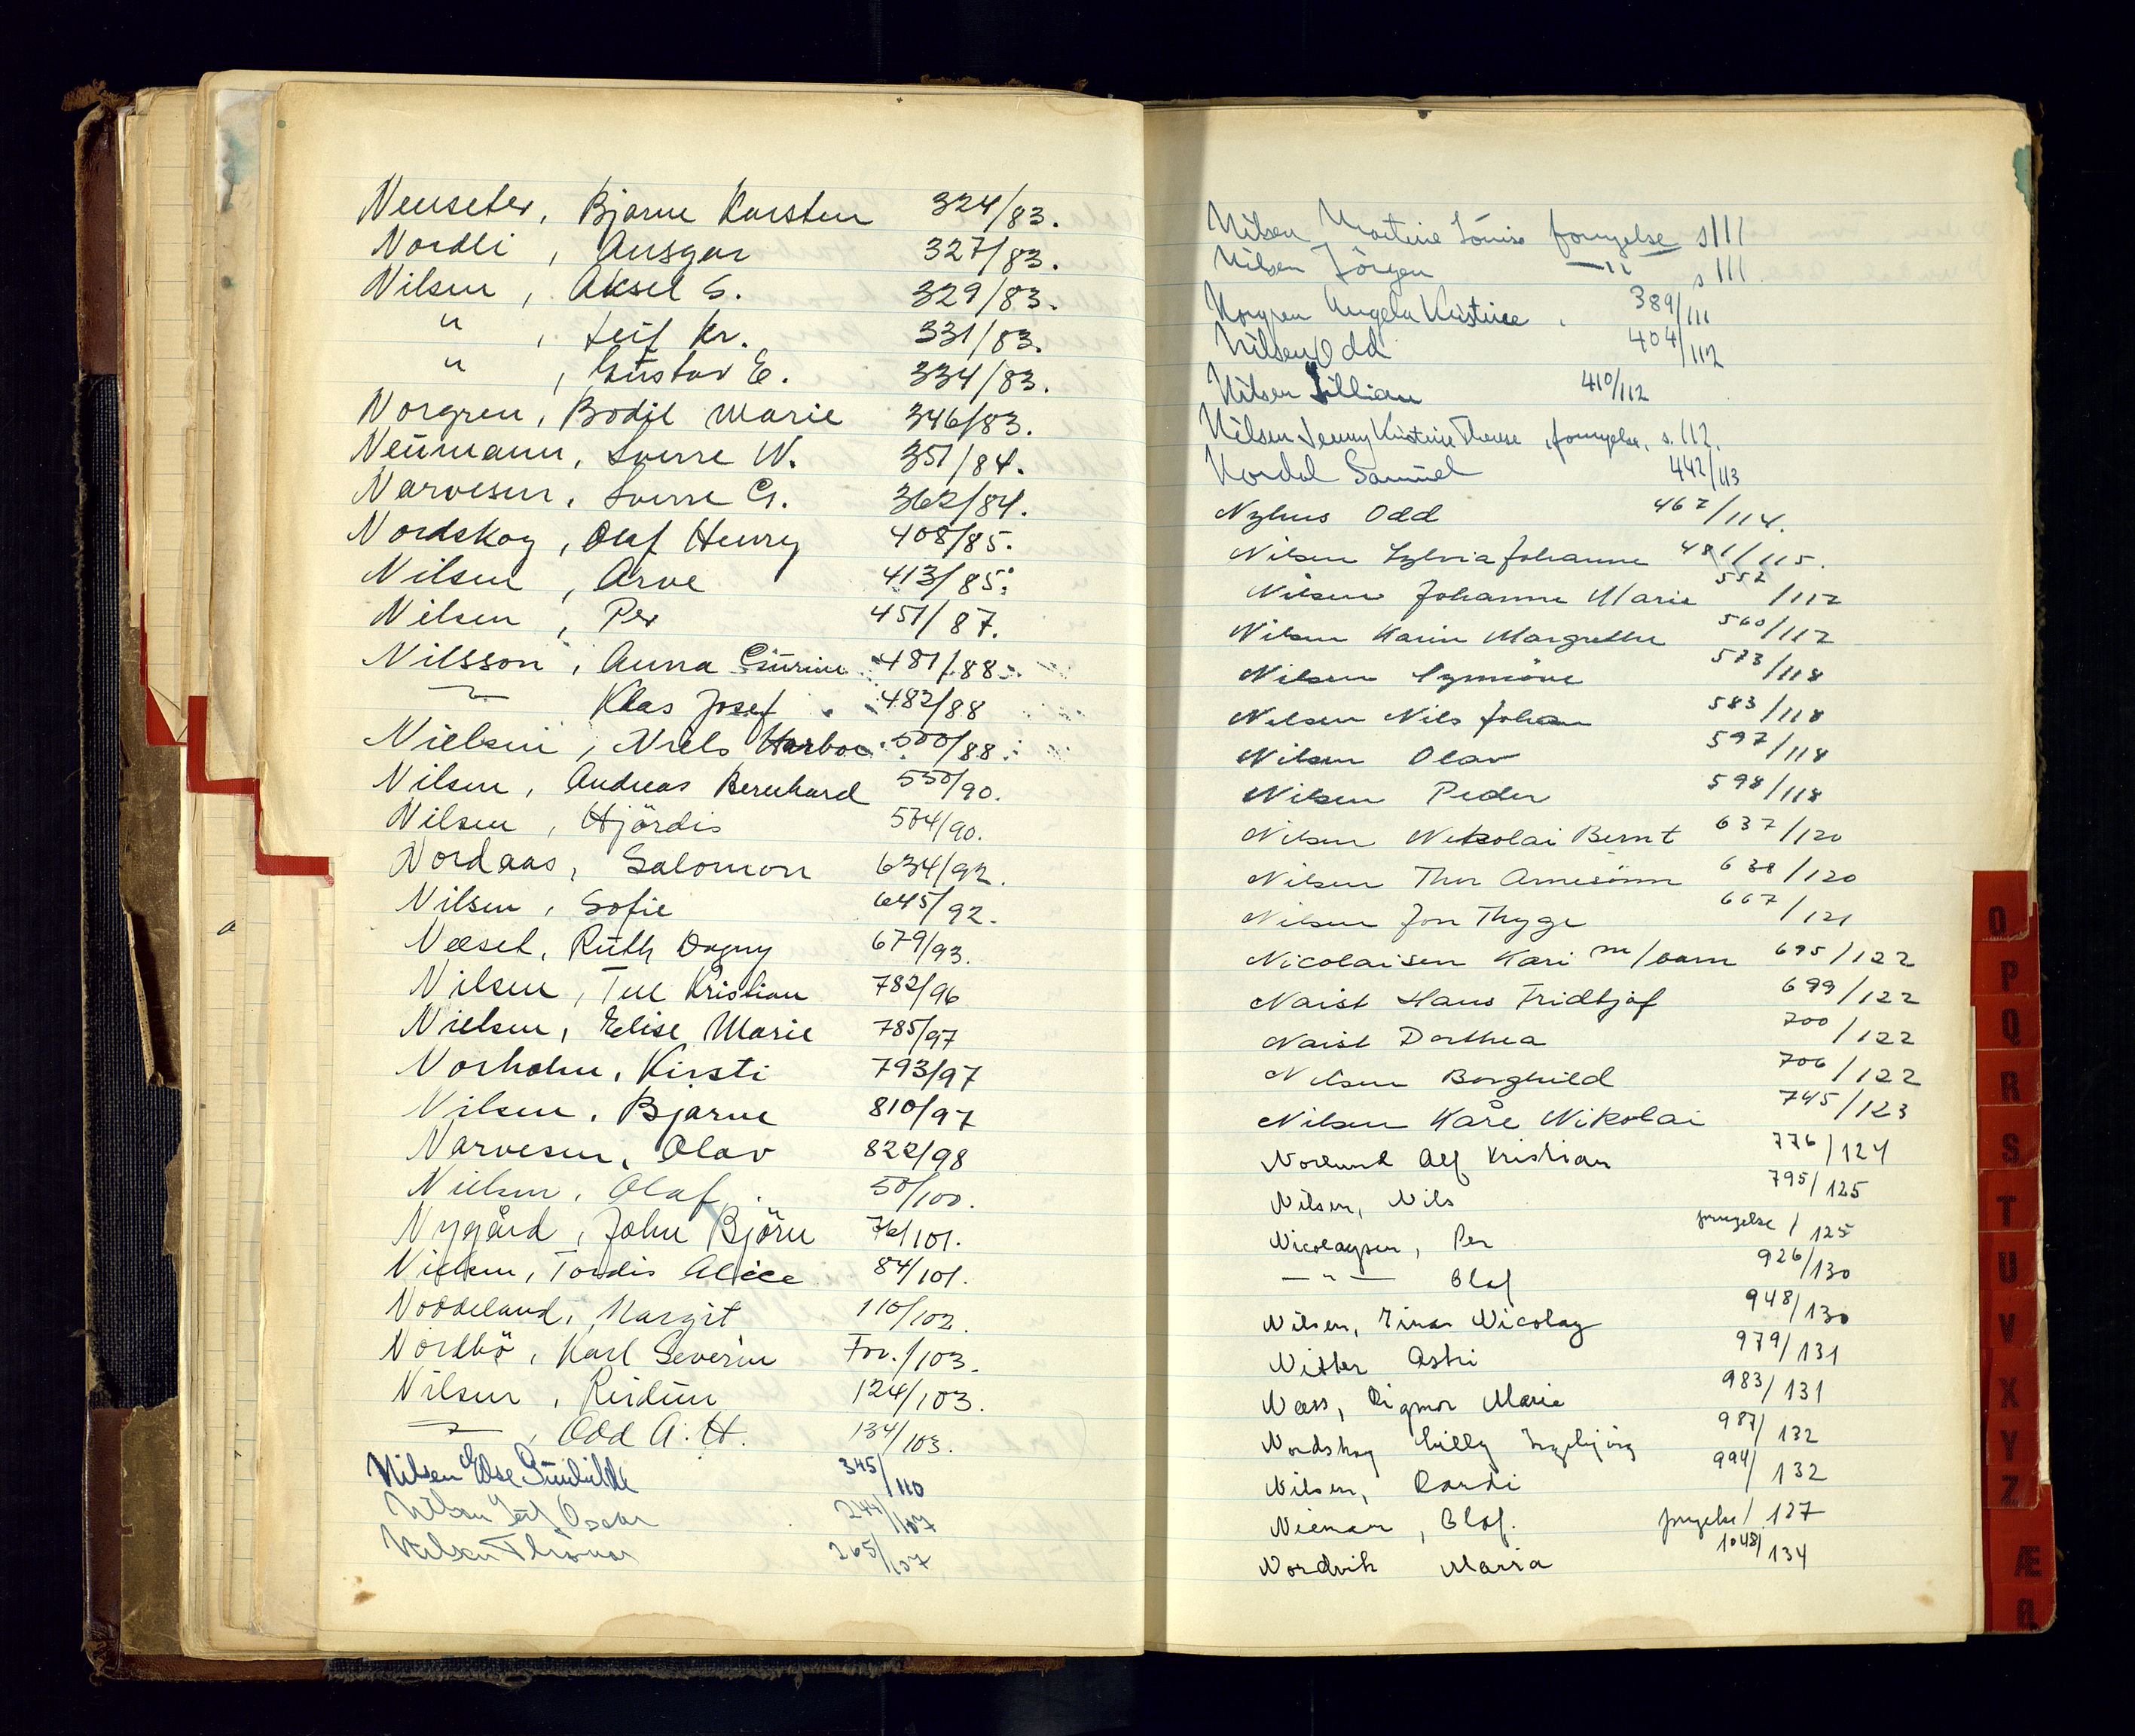 Neuseter, Bjarne Karsten 324/83.
Nordli, Ansgar 327/83.
Nilsen, Aksel S. 329/83.
" , Leif Kr. 331/83.
" , Gustav E. 334/83.
Norgren, Bodil Marie 346/83.
Neumann, Sverre W. 351/84.
Narvesen, Sverre G. 362/84.
Nordskog, Olaf Henry 408/85.
Nilsen, Arve 413/85.
Nilsen, Per 451/87.
Nilsson, Anna 481/88.
Klas Josef 482/88
Nielsen, Niels Harboe 500/88.
Nilsen, Andreas Bernhard 550/90.
Nilsen, Hjördis 574/90.
Nordaas, Salomon 634/92.
Nilsen, Sofie 645/92.
Næset, Ruth Dagny 679/93.
Nilsen, Kristian 782/96
Nielsen, Elise Marie 785/97
Norholm, Kirsti 793/97
Nilsen, Bjarne 810/97
Narvesen, Olav 822/98
Nielsen, Olaf 50/100.
Nygård, John Björn 76/101.
Nielsen, Tordis Alice 84/101.
Noddeland, Margit 110/102.
Nordbö, Karl Severin For./103.
Nilsen, Reidun 124/103.
, Odd A. H. 134/103.
Nilsen Else Gunhild 345/110
Nilsen Leif Oscar 244/107
Nilsen Thomas 265/107
Nilsen Martine Louise fornyelse s 111
Nilsen Jörgen —"— s 111
Norgren Angela Kristine 389/111
Nilsen Odd 404/112
Nilsen Lillian 410/112
Nilsen Jenny Kristine Therese, fornyelse, s. 112.
Nordal Samuel 442/113
Nyhus Odd 467/114.
Nilsen Sylvia Johanne 481/115.
Nilsen Johanne Marie 552/117
Nilsen Karin Margrethe 560/117
Nilsen Synnöve 573/118
Nilsen Nils Johan 583/118
Nilsen Olav 597/118
Nilsen Peder 598/118
Nilsen Nikolai Bernt 637/120
Nilsen Thor Arnesönn 638/120
Nilsen Jon Thyge 667/121
Nicolaisen Kari m/barn 695/122
Naist Hans Fridtjof 699/122
Naist Dorthea 700/122
Nilsen Borghild 706/122
Nilsen Kåre Nikolai 745/123
Norlund Alf Kristian 776/124
Nilsen, Nils 795/125
Nicolaysen, Per fornyelse/125
— " — Olaf 926/130
Nilsen, Einar Nicolay 948/130
Nitter Astri 979/131
Næss, Rigmor Marie 983/131
Nordskog Lilly Ingebjörg 987/132
Nilsen, Randi 994/132
Nieman, Olaf. fornyelse/127
Nordvik Maria 1048/134
O
P
Q
R
S
T
U
V
X
Y
Z
Æ
Ø